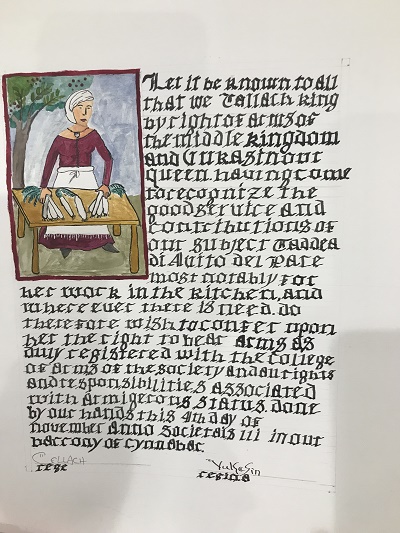 Let it be known to all
that we Tallach king
by right of arms of
the middle kingdom
and Yukasin our
queen having come
to recognize the
good service and
contributions of
our subject Taddea
di Avito del Pace
most notably for
her work in the kitchen, and
where ever there is need. do
therefore wish to confer upon
her the right to bear arms as
duly registered with the college
of arms of the society and all rights
and responsibilities associated
with armigerous status. done
by our hands this 4th day of
november anno societatis 111 in our
barony of cynnabar.
rege
Yukasin
regina